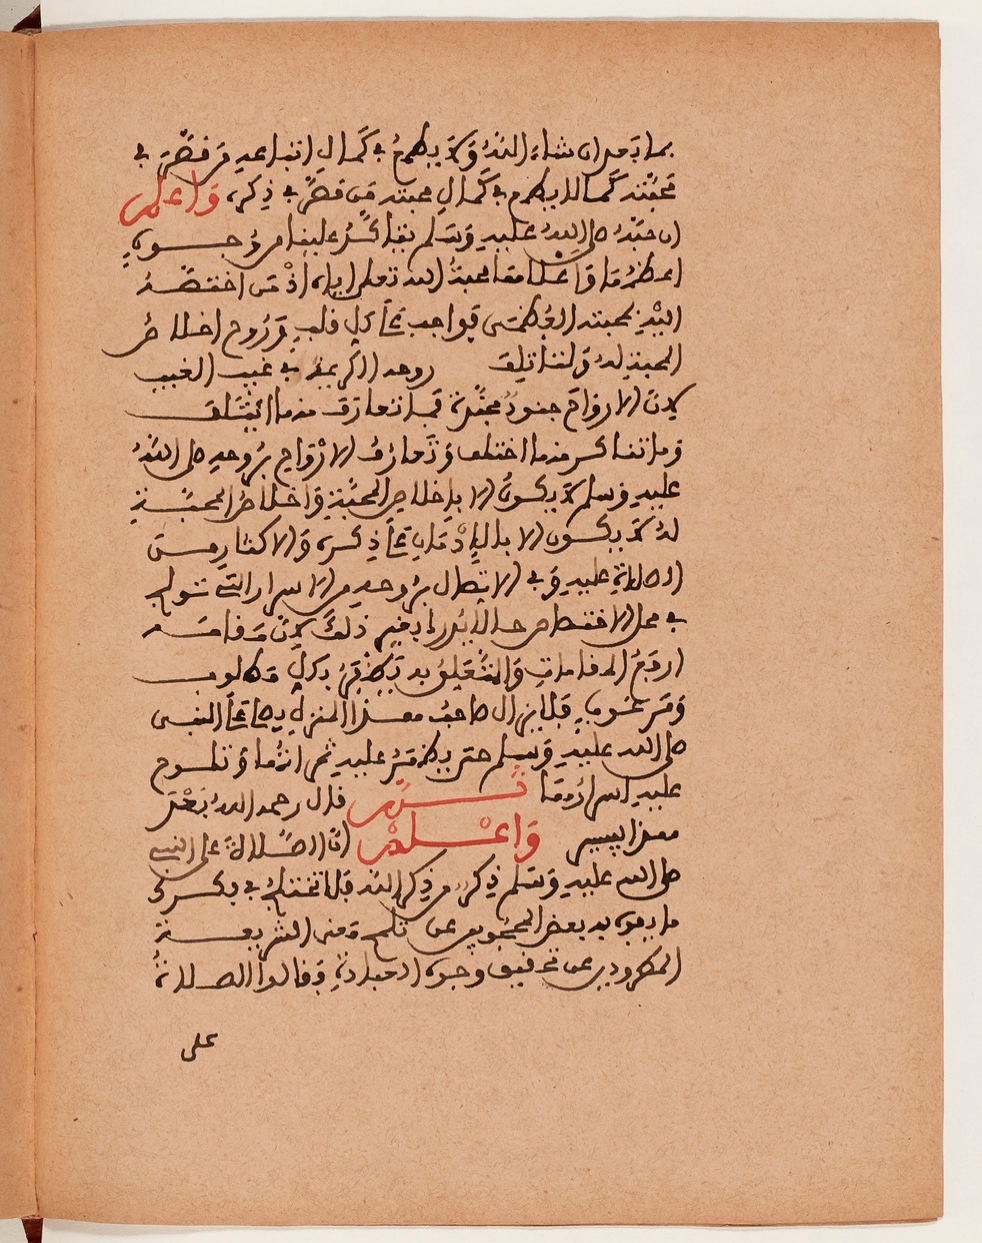 بما بعد ان شاء الله وَلَا يطمعُ في كَمالِ اتباعه مَن قصَّرَ في
مَحبّته كما لا يطمع في كَمالِ محبته مَن قصَّرَ في ذِكره وَاعلمْ
ان حبّهُ صلى اللهُ عليه وَسَلم يتأكّدُ علينا من وُجوهٍ
اعظمُهَا وَأعلاها محبةُ الله تعلى اياه اذْ مَن اختصّهُ
اللهُ بمحبته العُظمَى فواجب عَلَى كلِ قلبٍ وَرُوح اخلاصُ
المحبةِ لهُ وَلتأتلف روحه الكريمة في غيب الغيب
لِانَّ الارواحَ جنودٌ مجنّدة فما تعارَف منها ائتَلَف
وَما تناكر منها اختلف وَتَعارُفُ الارْوَاحِ برُوحه صلى اللهُ
عليه وَسلم لَا يكونُ الا بإخلاصِ المحبّةِ وَاخلاصُ المحبّةِ
لهُ لَا يكون الا بالإدْمَانِ عَلَى ذِكره وَالاكثارِ مِنَ
الصلاةِ عليه وَفي الاتصال برُوحه من الاسرار التي تتوالى
في محل الاختصاص ما لا يُدركُ بغيرِ ذلكَ لِانّ مَقامَهُ
ارفعُ المقاماتِ وَالتّعَلقُ به يَظْفَرُ بكلِ مَطلوب
وَمَرغوبٍ فلا يزال صاحبُ هذا المنزلِ يصلى عَلَى النبى
صلى الله عليه وَسلم حتى يظهَرُ عليه ثمراتُها وَتلوح
عليه اسرارُها قال رحمه اللهُ بَعْدَ
هذا بيسير وَاعْلمْ انَّ الصّلاةَ على النبي
صلى الله عليه وَسَلم ذِكرٌ من ذِكرِ الله فلا تختلجُ في بكرك
ما يفوه به بعض المحجوبين عن مَعنى الشريعة
المطرودين عن تحقيق وجوه العبادةِ وَقالوا الصلاةُ
على